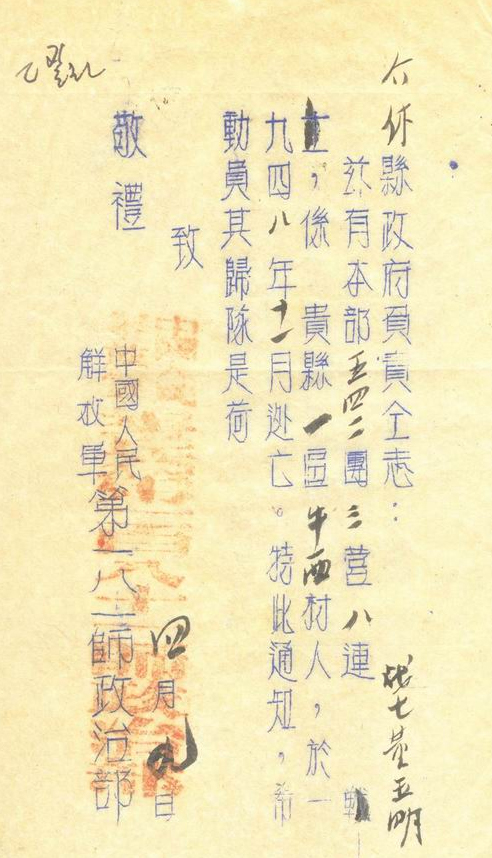 介休縣政府負責仝志：
战士黄玉明
茲有本部五四二團三营八連 戰
士，係 貴縣一區牛西村人，於一
九四八年十一月逃亡。特此通知，希
動員其歸隊是荷
致
敬禮
中國人民
解放軍第一八一師政治部
四月九日